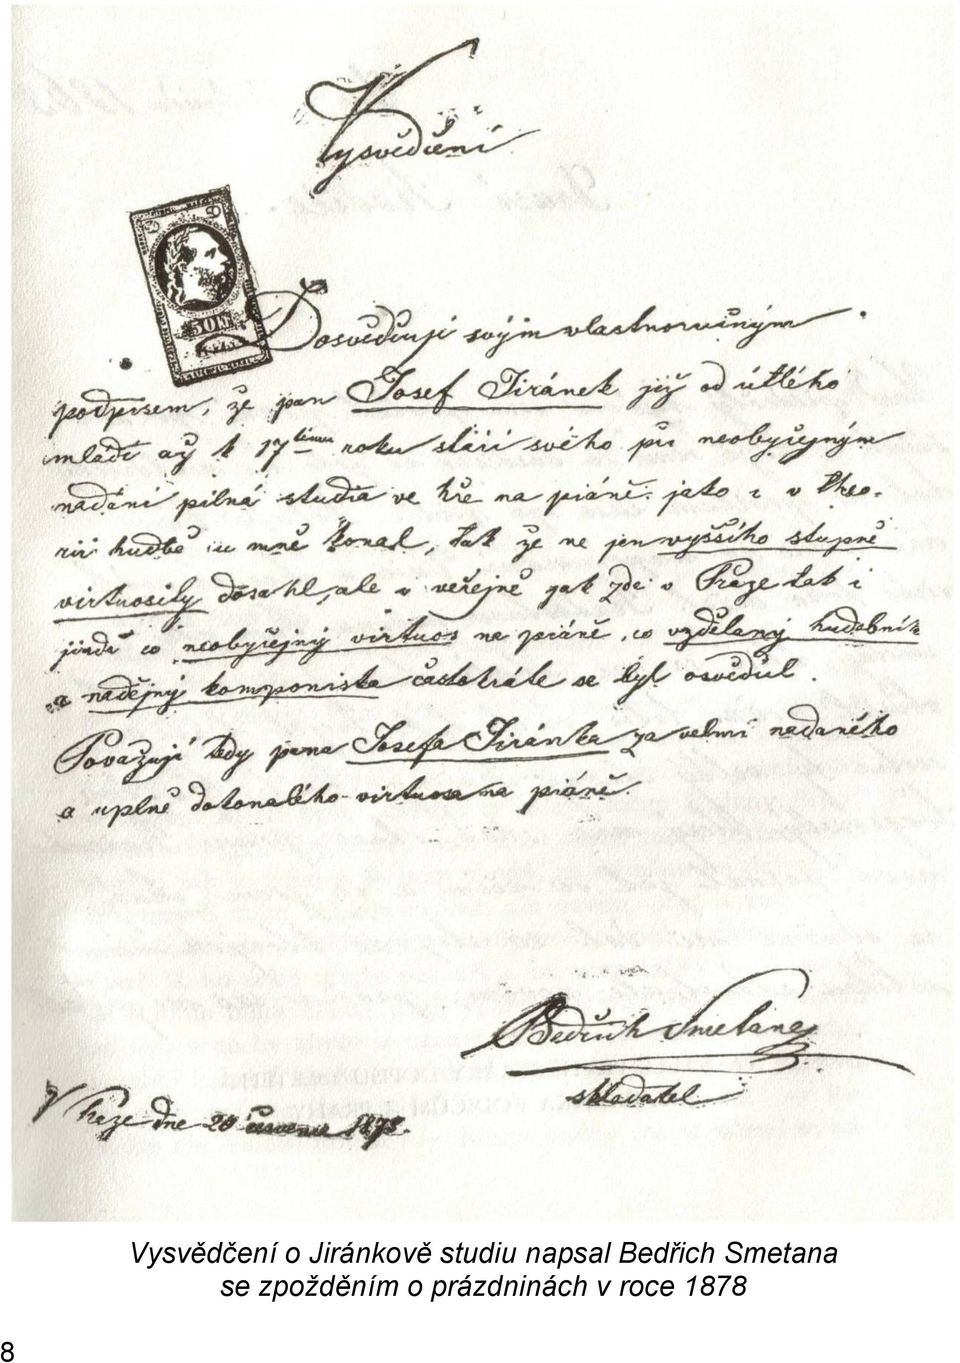 Vysvědčení
50 Kr.
Dosvědčuji svým vlastnoručným
podpisem, že pan Josef Jiránek již od útlého
mládí až k 17tému roku stáří svého při neobyčejným
nadání pilná studia ve hře na piáně jako i v theo-
rii hudbě u mně konal, tak že ne jen vyššího stupně
virtuosity dosahl, ale v veřejně jak zde v Praze tak i
jinde co neobyčejný virtuos na piáně, co vzdělaný hudebník
a nadějný komponista častokráte se byl osvědčil.
Považuji tedy pana Josefa Jiránka za velmi nadaného
a uplně dokonalého virtuosa na piáně.
Bedřich Smetana
skladatel
V Praze dne 20 července 1878.
Vysvědčení o Jiránkově studiu napsal Bedřich Smetana
se zpožděním o prázdninách v roce 1878
8